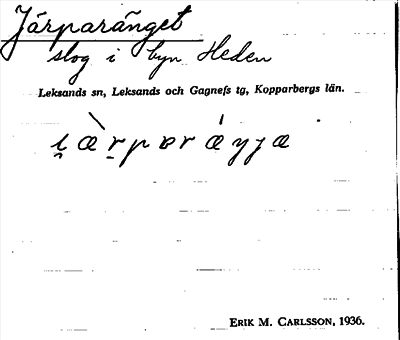 Järparänget
slog i byn Heden
Leksands sn, Leksands och Gagnefs tg, Kopparbergs län.
ERIK M. CARLSSON, 1936.